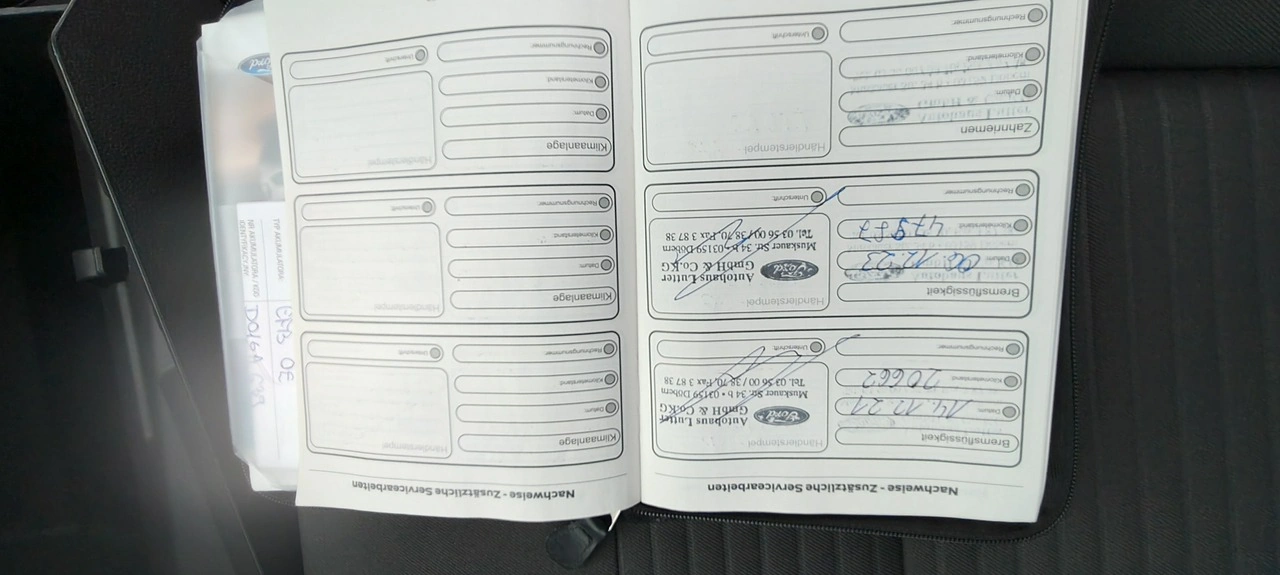 Nachweise - Zusätzliche Servicearbeiten
Bremsflüssigkeit
Datum: 14.12.21
Kilometerstand: 20662
Rechnungsnummer:
Händlerstempel
Ford
Autohaus Lutter
GmbH & Co.KG
Muskauer Str. 34 b • 03159 Döbern
Tel. 03 56 00 / 38 70, Fax 3 87 38
Unterschrift:
Bremsflüssigkeit
Datum: 06.12.23
Kilometerstand:
Rechnungsnummer:
Händlerstempel
Ford
Autohaus Lutter
GmbH & Co.KG
Muskauer Str. 34 b • 03159 Döbern
Tel. 03 56 00 / 38 70, Fax 3 87 38
Unterschrift:
Zahnriemen
Datum:
Kilometerstand:
Rechnungsnummer:
Händlerstempel
Unterschrift:
Nachweise - Zusätzliche Servicearbeiten
Klimaanlage
Datum:
Kilometerstand:
Rechnungsnummer:
Händlerstempel
Unterschrift:
Klimaanlage
Datum:
Kilometerstand:
Rechnungsnummer:
Händlerstempel
Unterschrift:
Klimaanlage
Datum:
Kilometerstand:
Rechnungsnummer:
Händlerstempel
Unterschrift:
Ford
TYP AKUMULATORA: EFB OE
NR AKUMULATORA / KOD